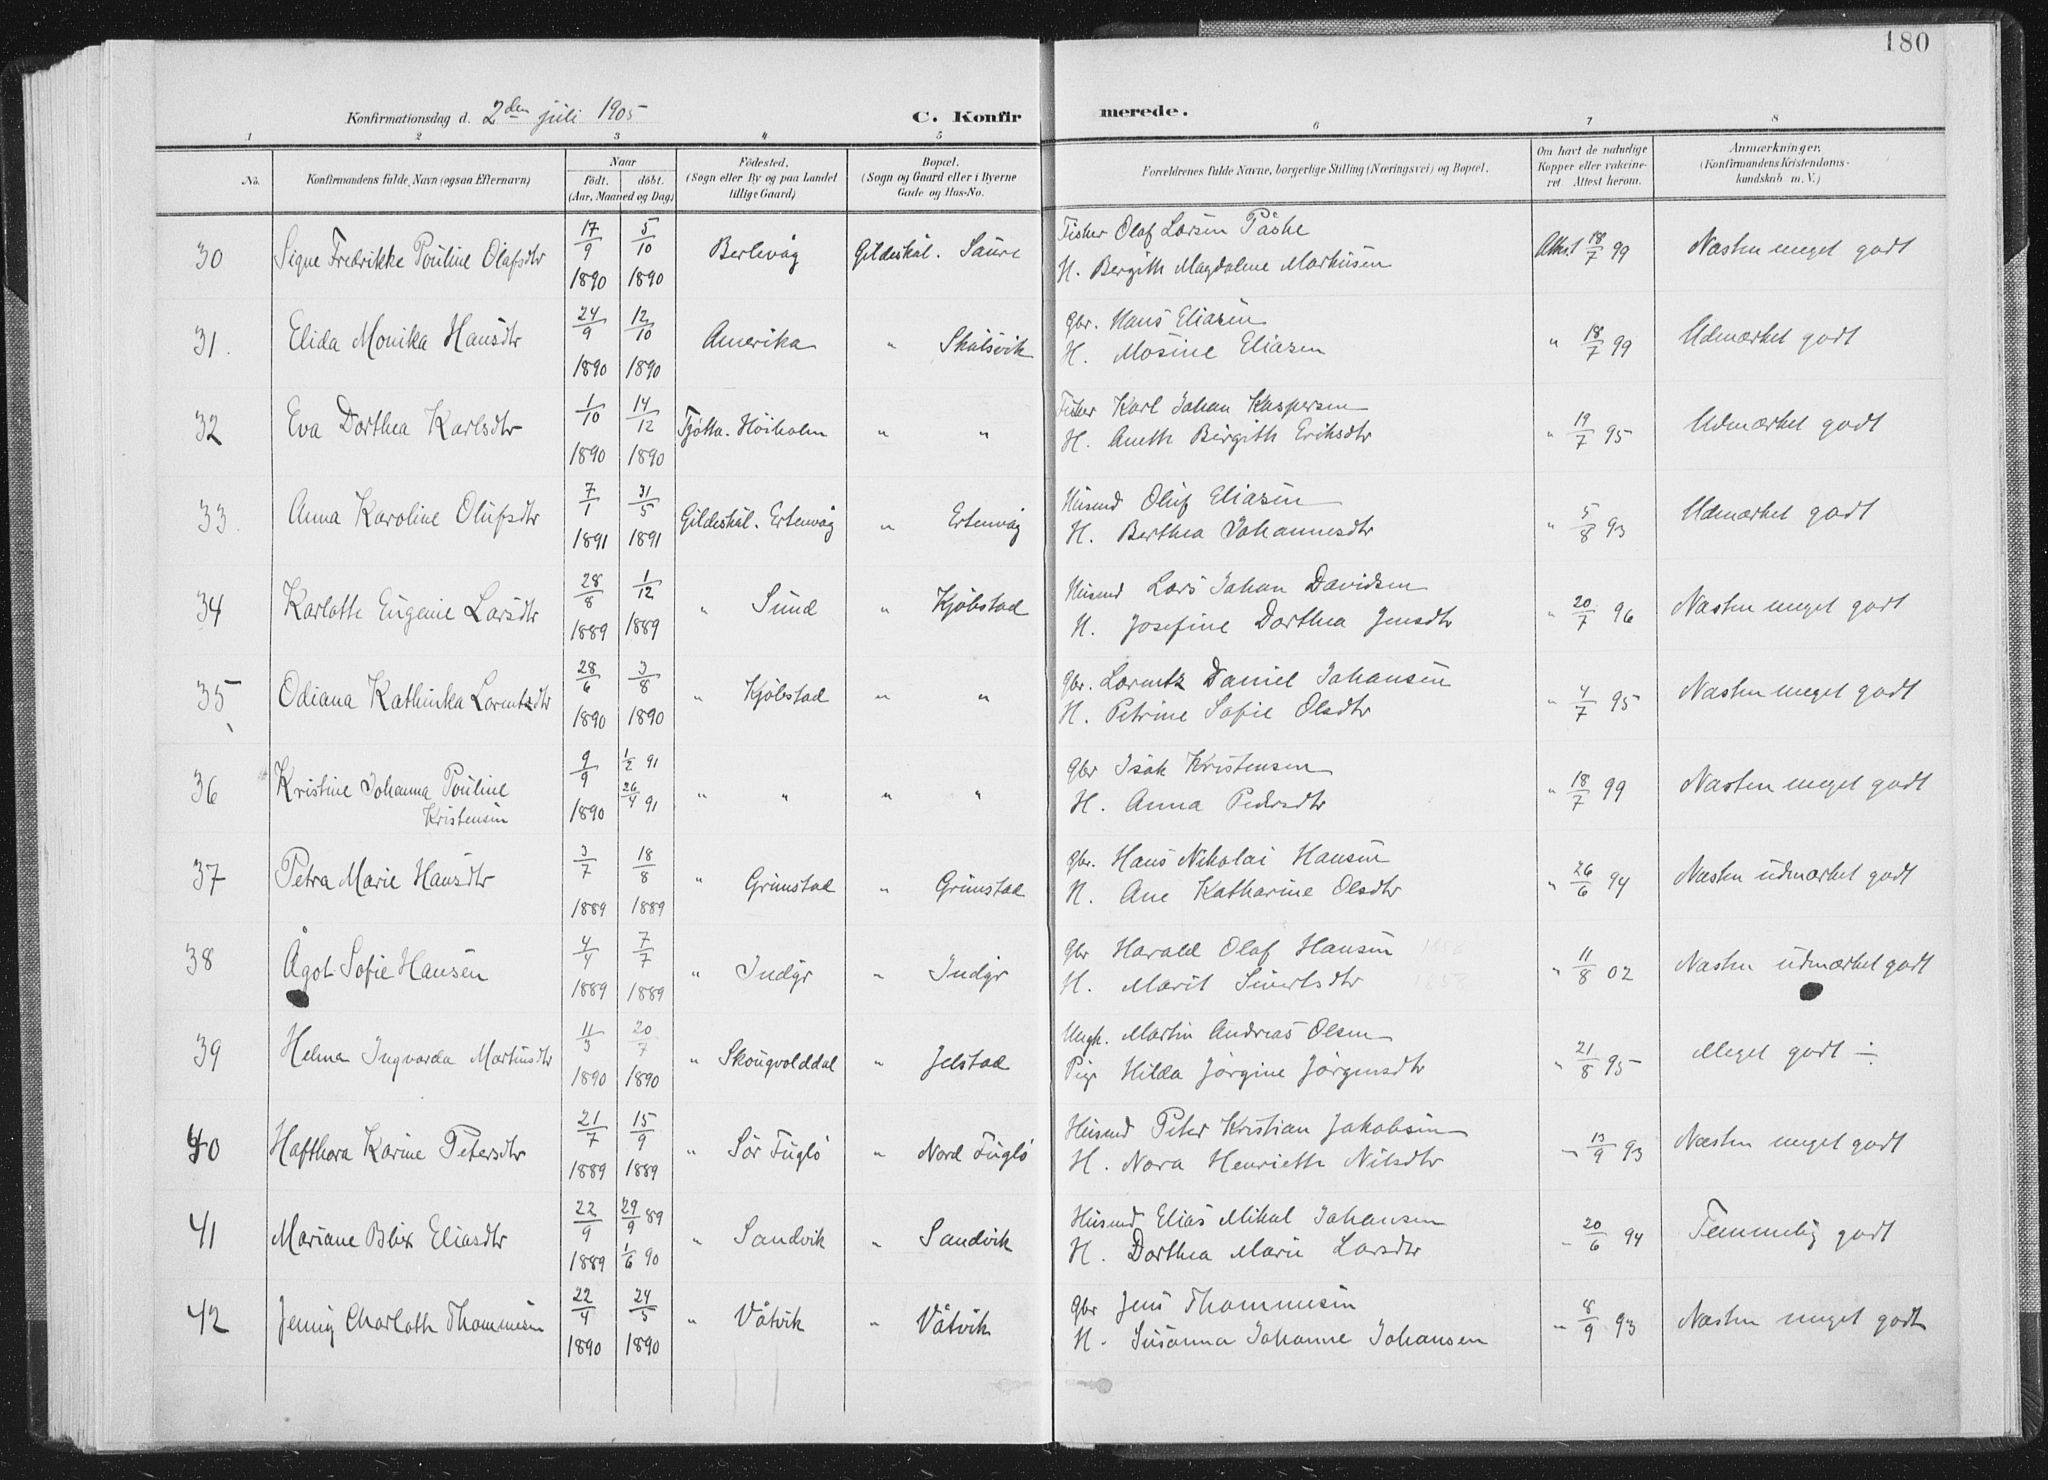 180
Konfirmationsdag d. 2den juli 1905
C. Konfirmerede.
1 2 3 4 5 6 7 8
No.
Konfirmandens fulde Navn (ogsaa Efternavn)
Naar
födt. döbt.
(Aar, Maaned og Dag)
Födested.
(Sogn eller By og paa Landet
tillige Gaard)
Bopæl.
(Sogn og Gaard eller i Byerne
Gade og Hus-No.
Forældrenes fulde Navne, borgerlige Stilling (Næringsvei) og Bopæl.
Om havt de naturlige
Kopper eller vakcine-
ret. Attest herom.
Anmærkninger.
(Konfirmandens Kristendoms-
kundskab m. V.)
30 Signe Fredrikke Pouline Olafsdtr 17/9 1890 5/10 1890 Berlevåg Gildeskål. Saure
Fisker Olaf Larsen Påske
H. Bergith Magdalene Markusen
Attest 18/7 99 Næsten meget godt
31. Elida Monika Hansdtr 24/9 1890 12/10 1890 Amerika " Skålsvik
gbr. Hans Eliasen
H. Mosine Eliasen
" 18/7 99 Udmærket godt
32 Eva Dorthea Karlsdtr 1/10 1890 14/12 1890 Tjötta. Höiholm " "
Fisker Karl Johan Kaspersen
H. Aneth Birgith Eriksdtr
" 19/7 95 Udmærket godt
33. Anna Karoline Olufsdtr 7/1 1891 31/5 1891 Gildeskål. Ertenvåg " Ertenvåg
Husmd Oluf Eliasen
H. Berthea Johannesdtr
" 5/8 93 Udmærket godt
34 Karlotte Eugenie Larsdtr 28/8 1889 1/12 1889 " Sund " Kjöbstad
Husmd Lars Johan Davidsen
H. Josefine Dorthea Jensdtr
" 20/7 96 Næsten meget godt
35 Odiana Kathinka Lorentzdtr 28/6 1890 3/8 1890 " Kjöbstad " "
gbr. Lorentz Daniel Johansen
H. Petrine Sofie Olsdtr
" 4/7 95 Næsten meget godt
36 Kristine Johanna Pouline
Kristensen 9/9 1890 1/2 91 26/4 91 " " " "
gbr Isak Kristensen
H. Anna Pedersdtr
" 18/7 99 Næsten meget godt
37 Petra Marie Hansdtr 3/7 1889 18/8 1889 " Grimstad " Grimstad
gbr. Hans Nikolai Hansen
H. Ane Katharine Olsdtr
" 26/6 94 Næsten udmærket godt
38 Ågot Sofie Hansen 4/4 1889 7/7 1889 " Indyr " Indyr
gbr Harald Olaf Hansen
H. Marit Sivertsdtr 1858
" 11/8 02 Næsten udmærket godt
39 Helma Ingvarda Martinsdtr 11/3 1890 20/7 1890 " Skougvolddal " Jelstad
Ungk. Martin Andreas Olsen
Pige Hilda Jörgine Jörgensdtr
" 21/8 95 Meget godt ÷
40 Hafthora Karine Petersdtr 21/7 1889 15/9 1889 " Sör Fuglö " Nord Fuglö
Husmd Peter Kristian Jakobsen
H. Nora Henriette Nilsdtr
" 13/9 93 Næsten meget godt
41 Mariane Blix Eliasdtr 22/9 1889 29/9 89 1/6 90 " Sandvik " Sandvik
Husmd Elias Mikal Johansen
H. Dorthea Marie Larsdtr
" 20/6 94 Temmelig godt
42 Jenny Charlotte Thommesen 22/4 1890 24/5 1890 " Våtvik " Våtvik
gbr Jens Thommesen
H. Susanna Johanne Johansen
" 8/9 93 Næsten meget godt